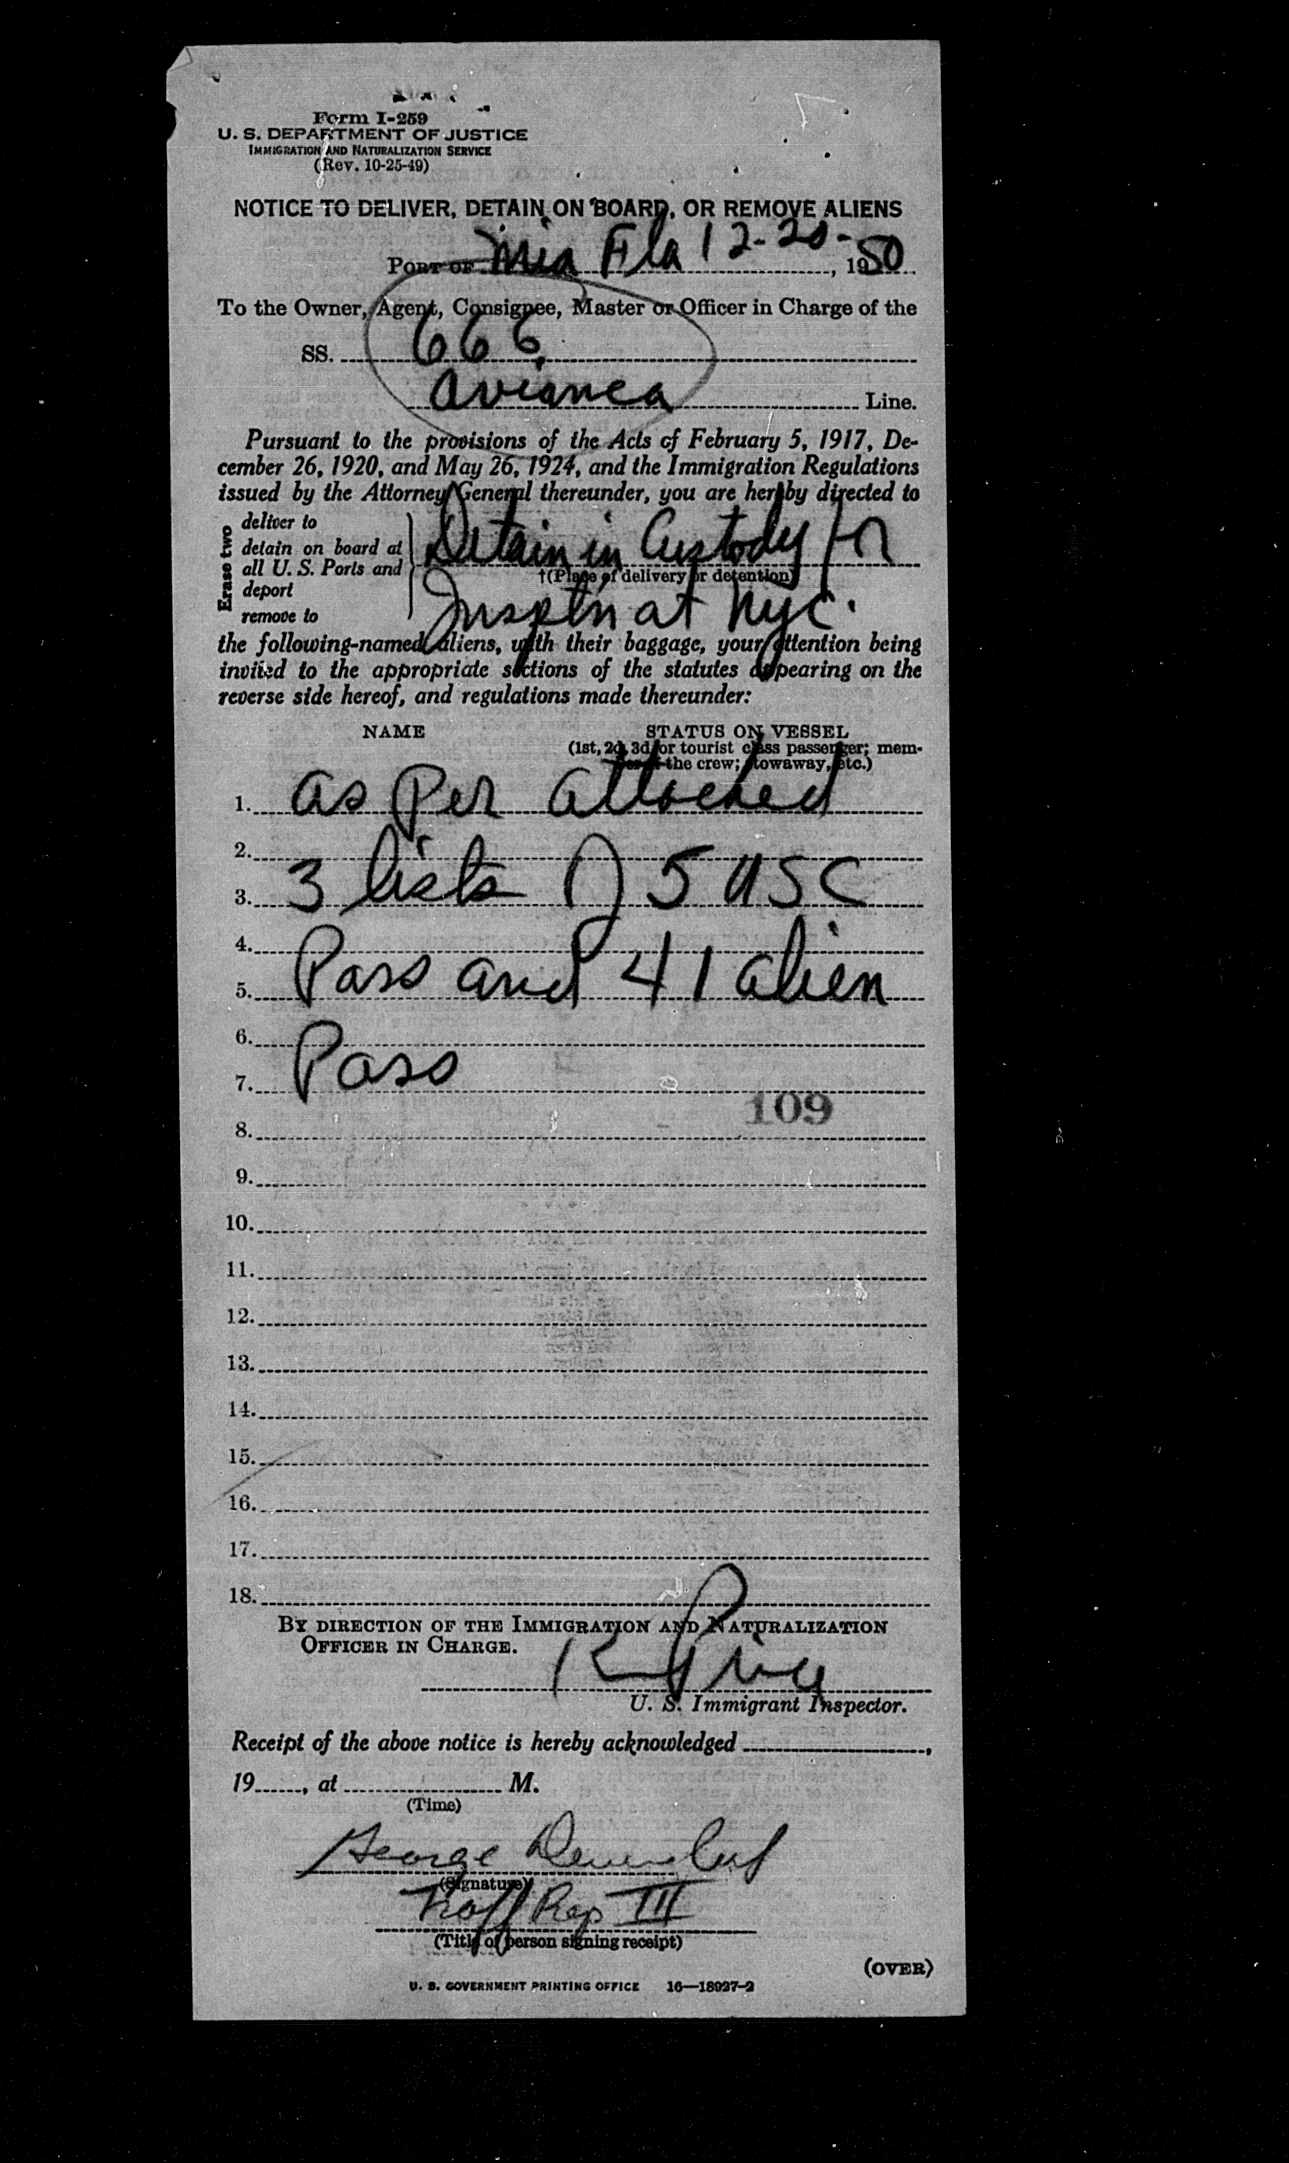 Form I-259
U. S. DEPARTMENT OF JUSTICE
IMMIGRATION AND NATURALIZATION SERVICE
(Rev. 10-25-49)
NOTICE TO DELIVER, DETAIN ON BOARD, OR REMOVE ALIENS
PORT OF Mia Fla 12-20-, 1950
To the Owner, Agent, Consignee, Master or Officer in Charge of the
SS. 666
Avianca Line.
Pursuant to the provisions of the Acts of February 5, 1917, De-
cember 26, 1920, and May 26, 1924, and the Immigration Regulations
issued by the Attorney General thereunder, you are hereby directed to
Erase two
deliver to
detain on board at
all U. S. Ports and
deport
remove to
Detain in Custody for
†(Place of delivery or detention)
Insptn at nyc.
the following-named aliens, with their baggage, your attention being
invited to the appropriate sections of the statutes appearing on the
reverse side hereof, and regulations made thereunder:
NAME STATUS ON VESSEL
(1st, 2d, 3d, or tourist class passenger; mem-
ber of the crew; stowaway, etc.)
1. as Per attached
2.
3. 3 lists of 5 USC
4.
5. Pass and 41 alien
6.
7. Pass
109
8.
9.
10.
11.
12.
13.
14.
15.
16.
17.
18.
BY DIRECTION OF THE IMMIGRATION AND NATURALIZATION
OFFICER IN CHARGE.
U. S. Immigrant Inspector.
Receipt of the above notice is hereby acknowledged ,
19 , at M.
(Time)
George
(Signature)
Traff Rep III
(Title of person signing receipt)
(OVER)
U. S. GOVERNMENT PRINTING OFFICE 16—18927-2